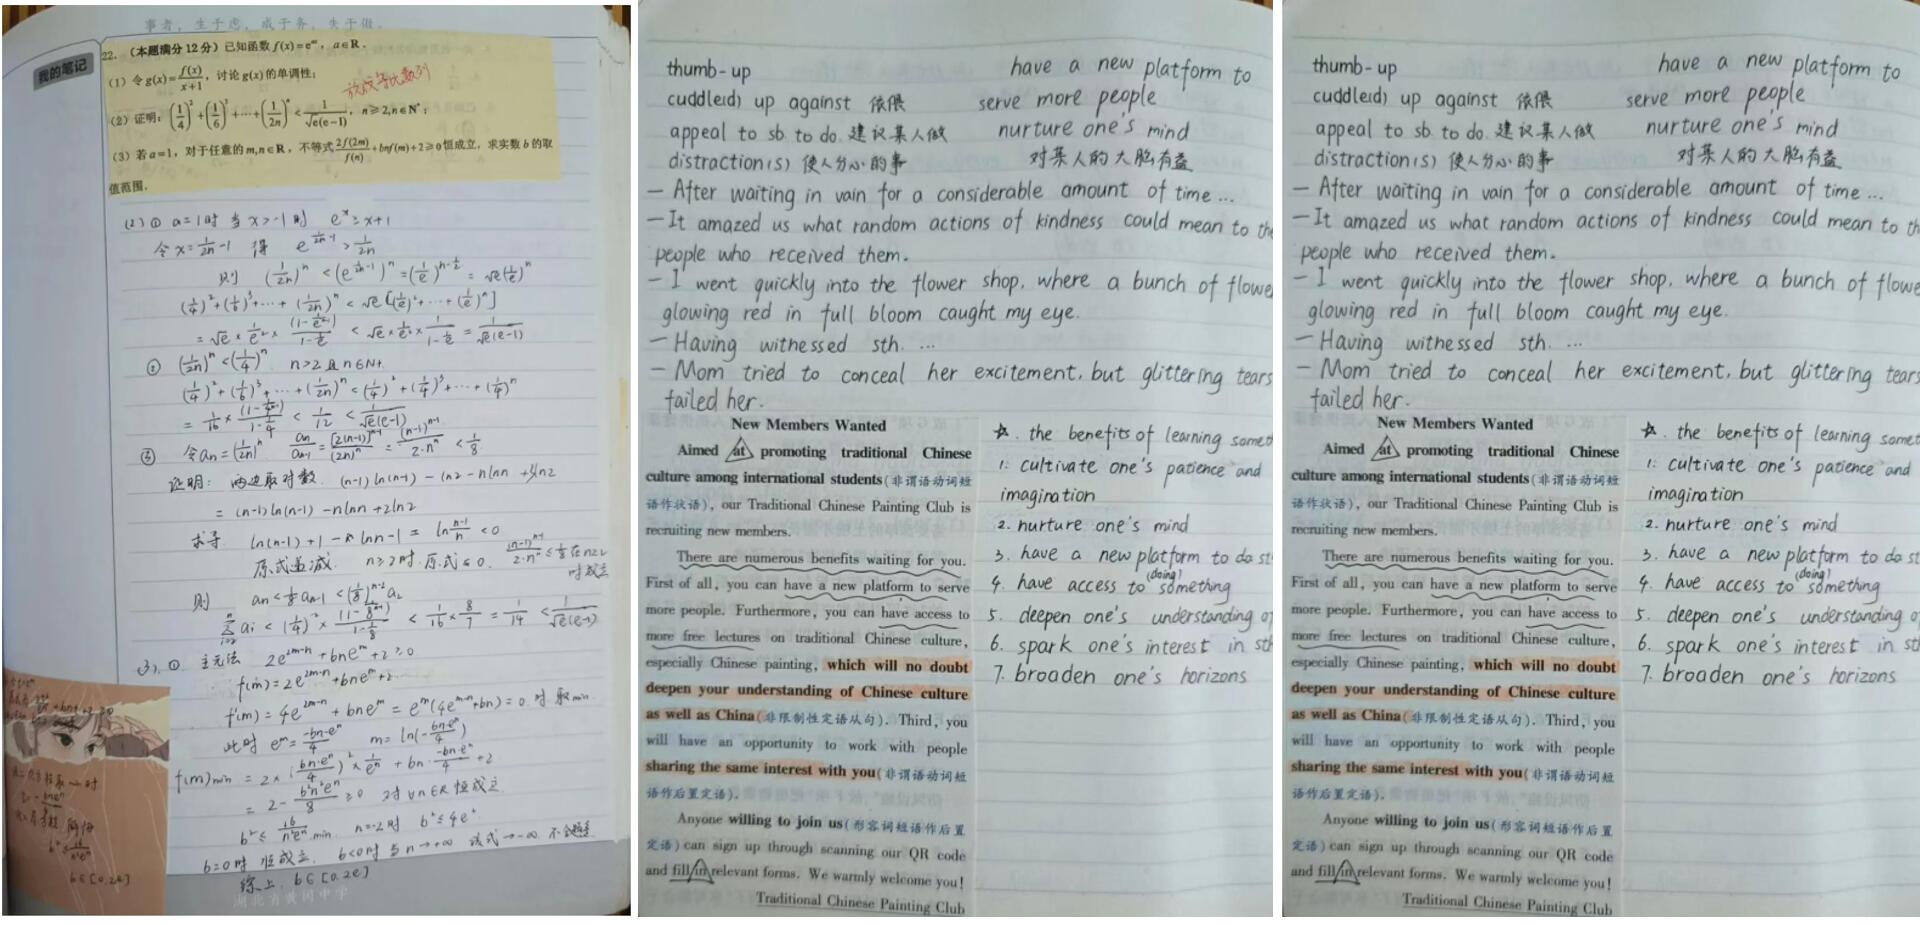 事者，生于虑，成于务，失于傲。
我的笔记
22.（本题满分12分）已知函数 f(x)=eᵃˣ，a∈R.
（1）令g(x)=f(x)/(x+1)，讨论g(x)的单调性；
放成等比数列
（2）证明：(1/4)²+(1/6)³+⋯+(1/2n)ⁿ<1/(√e(e−1))，n≥2,n∈N*；
（3）若a=1，对于任意的m,n∈R，不等式2f(2m)/f(n)+bnf(m)+2≥0恒成立，求实数b的取
值范围.
(2) ① a=1时 当x>-1时 eˣ≥x+1
令x=1/2n -1 得 e^(1/2n -1) > 1/2n
则 (1/2n)ⁿ<(e^(1/2n -1))ⁿ=(1/e)^(n-1/2)=√e(1/e)ⁿ
(1/4)²+(1/6)³+⋯+(1/2n)ⁿ<√e[(1/e)²+⋯+(1/e)ⁿ]
② (1/2n)ⁿ<(1/4)ⁿ n>2且n∈N+
(1/4)²+(1/6)³+⋯+(1/2n)ⁿ<(1/4)²+(1/4)³+⋯+(1/4)ⁿ
证明：两边取对数
= (n-1)ln(n-1)-nlnn+2ln2
求导
原式递减. n≥2时 原式≤0.
(3). ① 主元法 2e^(2m-n)+bneᵐ+2≥0
f(m)=2e^(2m-n)+bneᵐ+2
f'(m)=4e^(2m-n)+bneᵐ=eᵐ(4e^(m-n)+bn)=0时 取min.
此时 eᵐ=-bn·eⁿ/4 m=ln(-bn·eⁿ/4)
=2-b²n²eⁿ/8≥0 对∀n∈R恒成立
b²≤16/(n²eⁿ) min. n=-2时 b²≤4e²
b=0时 恒成立. b<0时 当n→+∞ 该式→-∞
综上. b∈[0,2e]
b∈[0,2e]
湖北省黄冈中学
thumb-up
have a new platform to
cuddle(d) up against 依偎
serve more people
appeal to sb. to do. 建议某人做
nurture one's mind
distraction(s) 使人分心的事
对某人的大脑有益
— After waiting in vain for a considerable amount of time ...
— It amazed us what random actions of kindness could mean to the
people who received them.
— I went quickly into the flower shop, where a bunch of flowe
glowing red in full bloom caught my eye.
— Having witnessed sth. ...
— Mom tried to conceal her excitement, but glittering tears
failed her.
New Members Wanted
Aimed at promoting traditional Chinese
culture among international students(非谓语动词短
语作状语), our Traditional Chinese Painting Club is
recruiting new members.
There are numerous benefits waiting for you.
First of all, you can have a new platform to serve
more people. Furthermore, you can have access to
more free lectures on traditional Chinese culture,
especially Chinese painting, which will no doubt
deepen your understanding of Chinese culture
as well as China(非限制性定语从句). Third, you
will have an opportunity to work with people
sharing the same interest with you(非谓语动词短
语作后置定语).
Anyone willing to join us(形容词短语作后置
定语)can sign up through scanning our QR code
and fill in relevant forms. We warmly welcome you!
Traditional Chinese Painting Club
☆. the benefits of learning somet
1. cultivate one's patience and
imagination
2. nurture one's mind
3. have a new platform to do st
4. have access to (doing) something
5. deepen one's understanding o
6. spark one's interest in sth
7. broaden one's horizons
thumb-up
have a new platform to
cuddle(d) up against 依偎
serve more people
appeal to sb. to do. 建议某人做
nurture one's mind
distraction(s) 使人分心的事
对某人的大脑有益
— After waiting in vain for a considerable amount of time ...
— It amazed us what random actions of kindness could mean to th
people who received them.
— I went quickly into the flower shop, where a bunch of flowe
glowing red in full bloom caught my eye.
— Having witnessed sth. ...
— Mom tried to conceal her excitement, but glittering tears
failed her.
New Members Wanted
Aimed at promoting traditional Chinese
culture among international students(非谓语动词短
语作状语), our Traditional Chinese Painting Club is
recruiting new members.
There are numerous benefits waiting for you.
First of all, you can have a new platform to serve
more people. Furthermore, you can have access to
more free lectures on traditional Chinese culture,
especially Chinese painting, which will no doubt
deepen your understanding of Chinese culture
as well as China(非限制性定语从句). Third, you
will have an opportunity to work with people
sharing the same interest with you(非谓语动词短
语作后置定语).
Anyone willing to join us(形容词短语作后置
定语)can sign up through scanning our QR code
and fill in relevant forms. We warmly welcome you!
Traditional Chinese Painting Club
☆. the benefits of learning somet
1. cultivate one's patience and
imagination
2. nurture one's mind
3. have a new platform to do st
4. have access to (doing) something
5. deepen one's understanding o
6. spark one's interest in st
7. broaden one's horizons